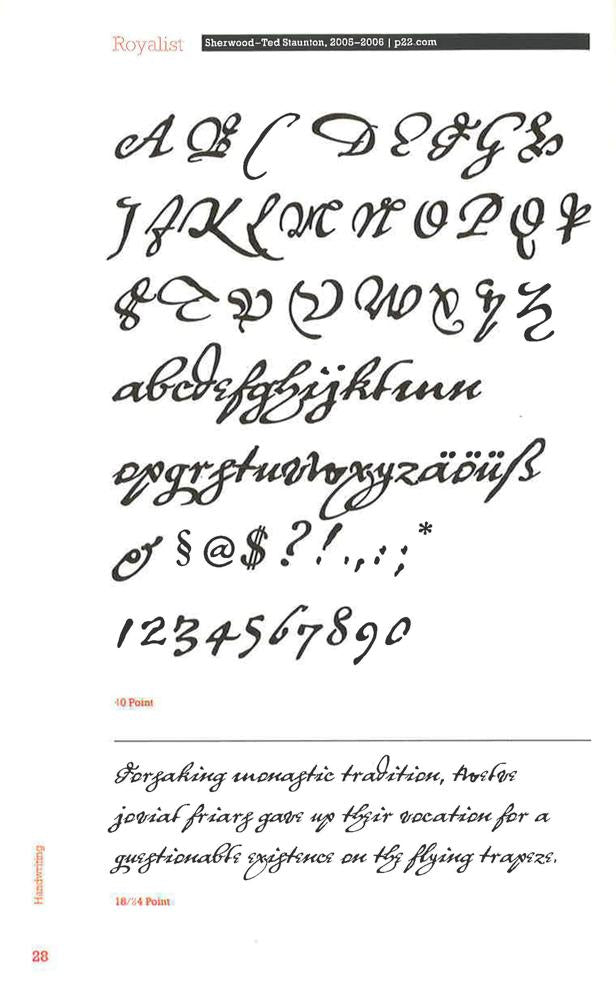 Royalist
Sherwood–Ted Staunton, 2005–2006 | p22.com
A B C D E F G H
I J K L M N O P Q R
S T U V W X Y Z
abcdefghijklmn
opqrstuvwxyzäöüß
& § @ $ ? ! . , : ; *
1 2 3 4 5 6 7 8 9 0
40 Point
Forsaking monastic tradition, twelve
jovial friars gave up their vocation for a
questionable existence on the flying trapeze.
18/24 Point
Handwriting
28